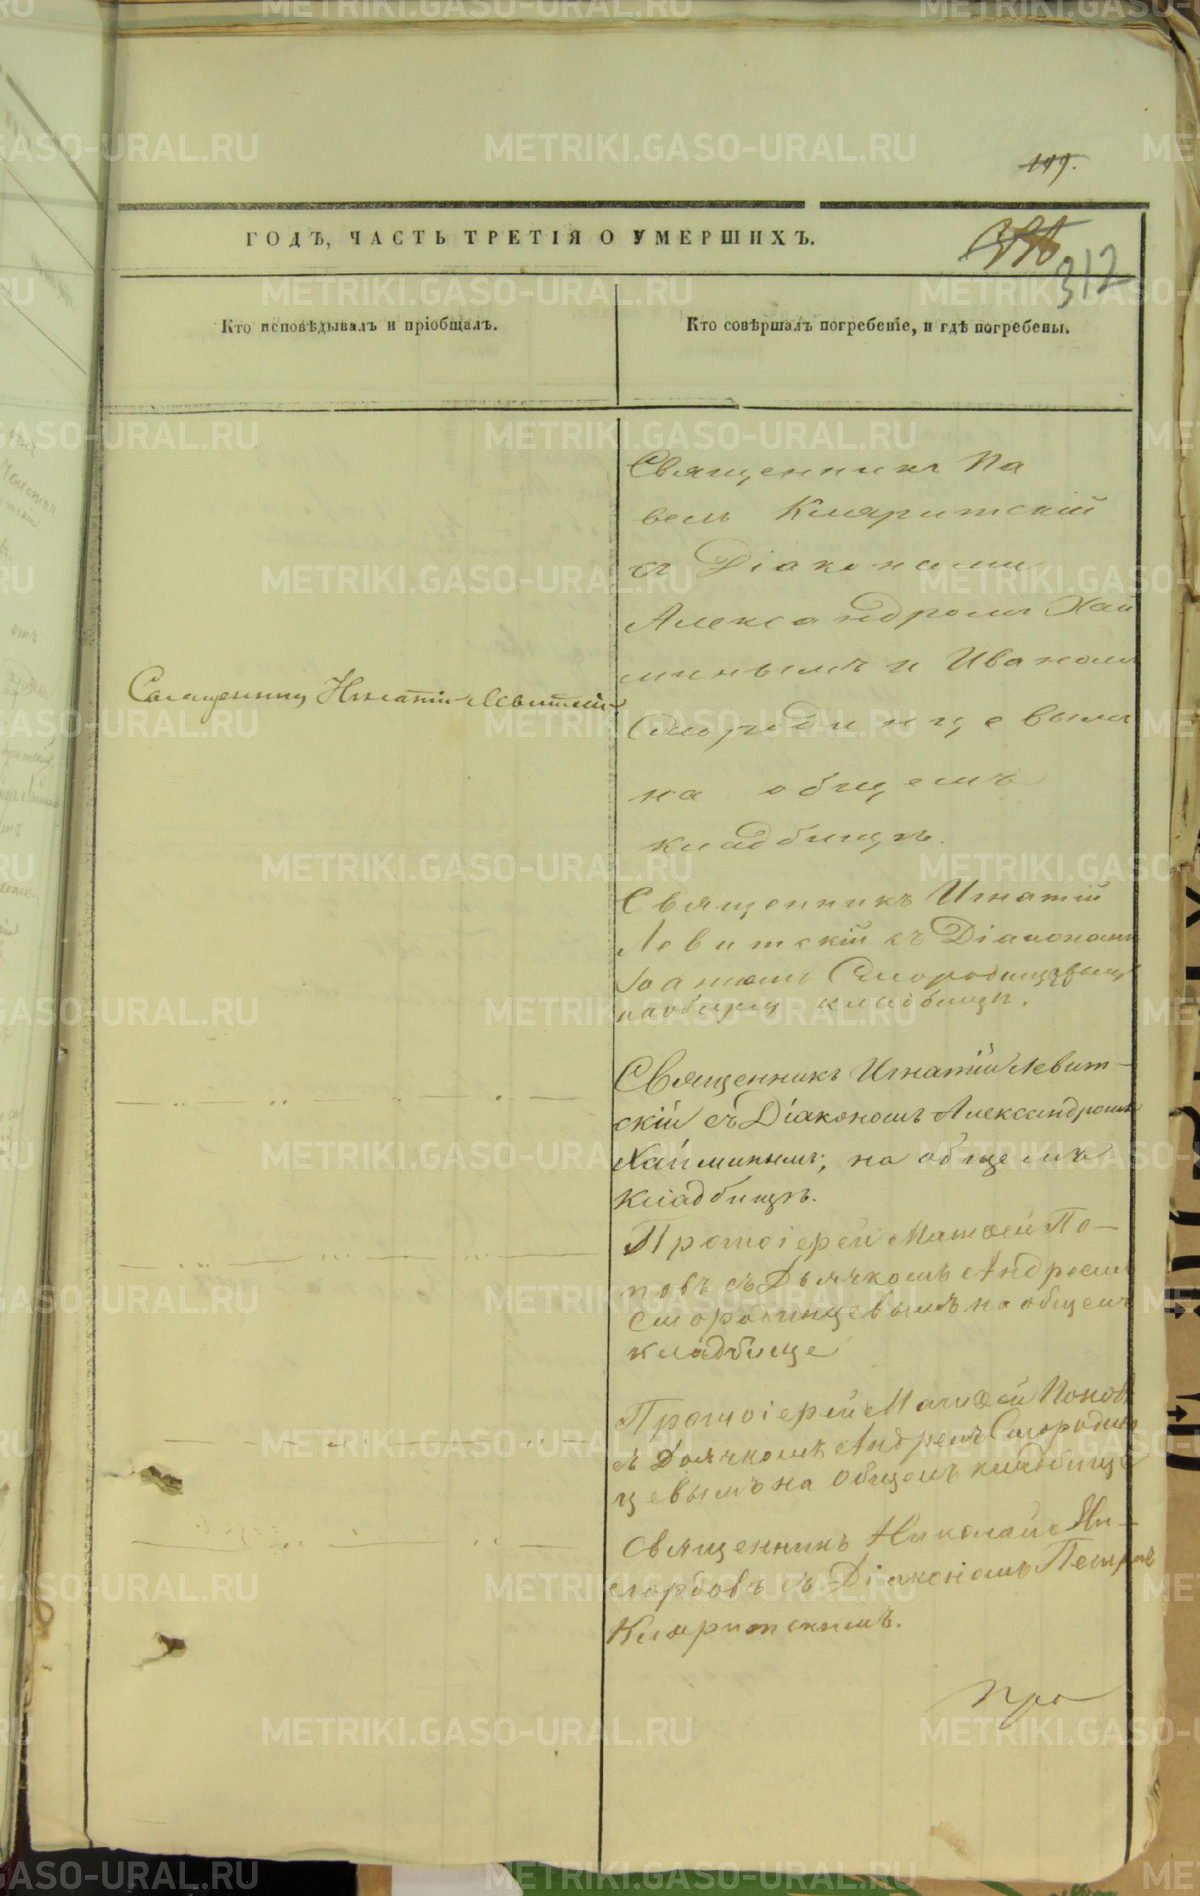 199.
312
ГОДЪ, ЧАСТЬ ТРЕТІЯ О УМЕРШИХЪ.
Кто исповѣдывалъ и пріобщалъ.
Кто совѣршалъ погребеніе, и гдѣ погребены.
Священникъ Па
велъ Кляритскій
съ Діаконами
Александромъ Хай
минымъ и Иваномъ
Смородинцевымъ
на общемъ
кладбищѣ.
Священникъ Игнатій Левитскій
Священникъ Игнатій
Левитскій съ Діакономъ
Іоанномъ Смородинцевымъ
на общемъ кладбищѣ.
Священникъ Игнатій Левит-
скій съ Діакономъ Александромъ
Хайминымъ, на общемъ
кладбищѣ.
Протоіерей Матѳей По-
повъ съ Дьячкомъ Андреемъ
Смородинцевымъ на общемъ
кладбище
Протоіерей Матѳей Поповъ
съ Дьячкомъ Андреемъ Смородин
цевымъ на общемъ кладбище
Священникъ Николай
съ Діакономъ Петромъ
Кляритскимъ.
Про
METRIKI.GASO-URAL.RU